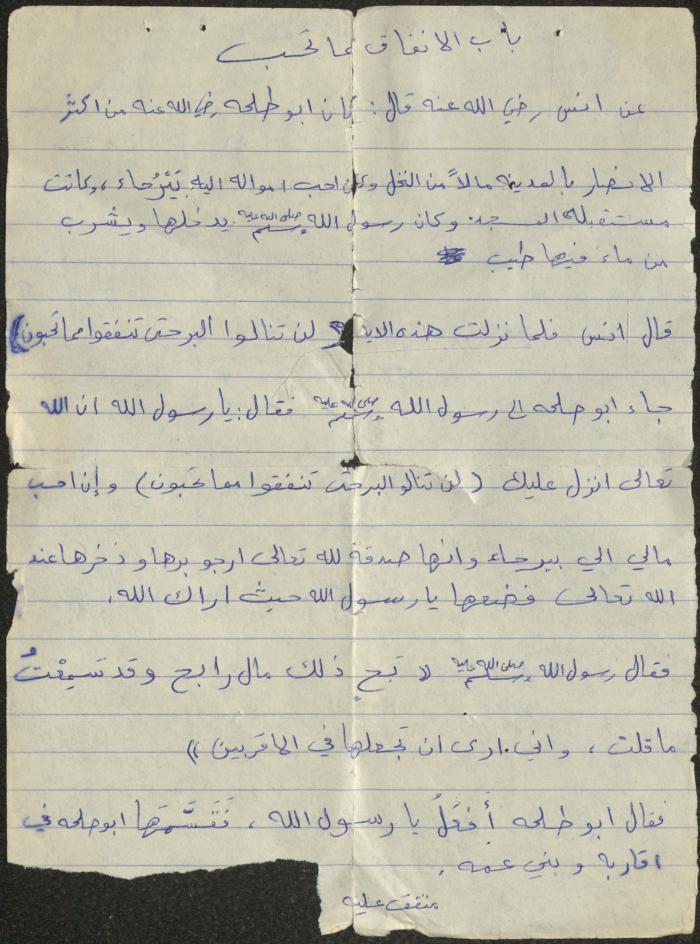 باب الانفاق مما تحب
عن انس رضي الله عنه قال: كان ابو طلحه رضي الله عنه من اكثر
الانصار بالمدينه مالاً من النخل وكان احب امواله اليه بَيْرُحاء، وكانت
مستقبلة المسجد وكان رسول الله صلى الله عليه وسلم يدخلها ويشرب
من ماء فيها طيب
قال انس فلما نزلت هذه الاية لن تنالوا البر حتى تنفقوا مما تحبون)
جاء ابو طلحه الى رسول الله صلى الله عليه وسلم فقال: يا رسول الله ان الله
تعالى انزل عليك (لن تنالو البر حتى تنفقوا مما تحبون) وإن احب
مالي الي بيرحاء وانها صدقة لله تعالى ارجو برها وذخرها عند
الله تعالى فضعها يا رسول الله حيث اراك الله.
فقال رسول الله صلى الله عليه وسلم بخٍ ذلك مال رابح وقد سَمِعْتُ
ما قلت، واني ارى ان تجعلها في الاقربين))
فقال ابو طلحه أَفعَلُ يا رسول الله، فَقَسَّمَها ابو طلحه في
اقاربه وبني عمه.
متفق عليه